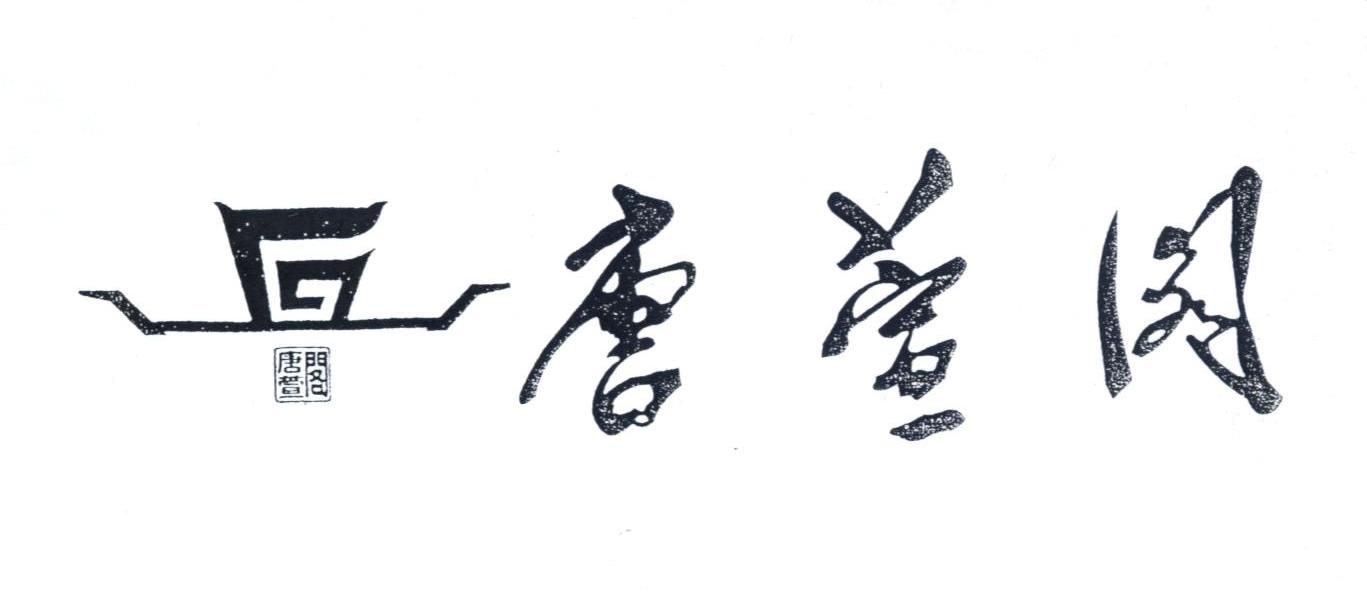 唐萱阁
唐萱閣